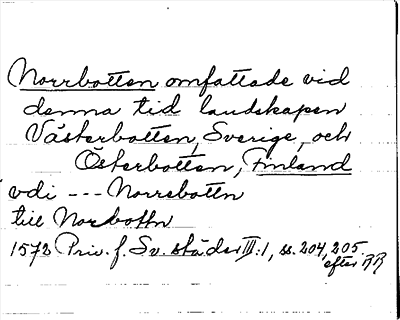 Norrbotten omfattade vid
denna tid landskapen
Västerbotten, Sverige, och
Österbotten, Finland
vdi --- Norrebottn
till Norbottn
1572 Priv. f. Sv. städer III:1, ss. 204, 205
efter RR